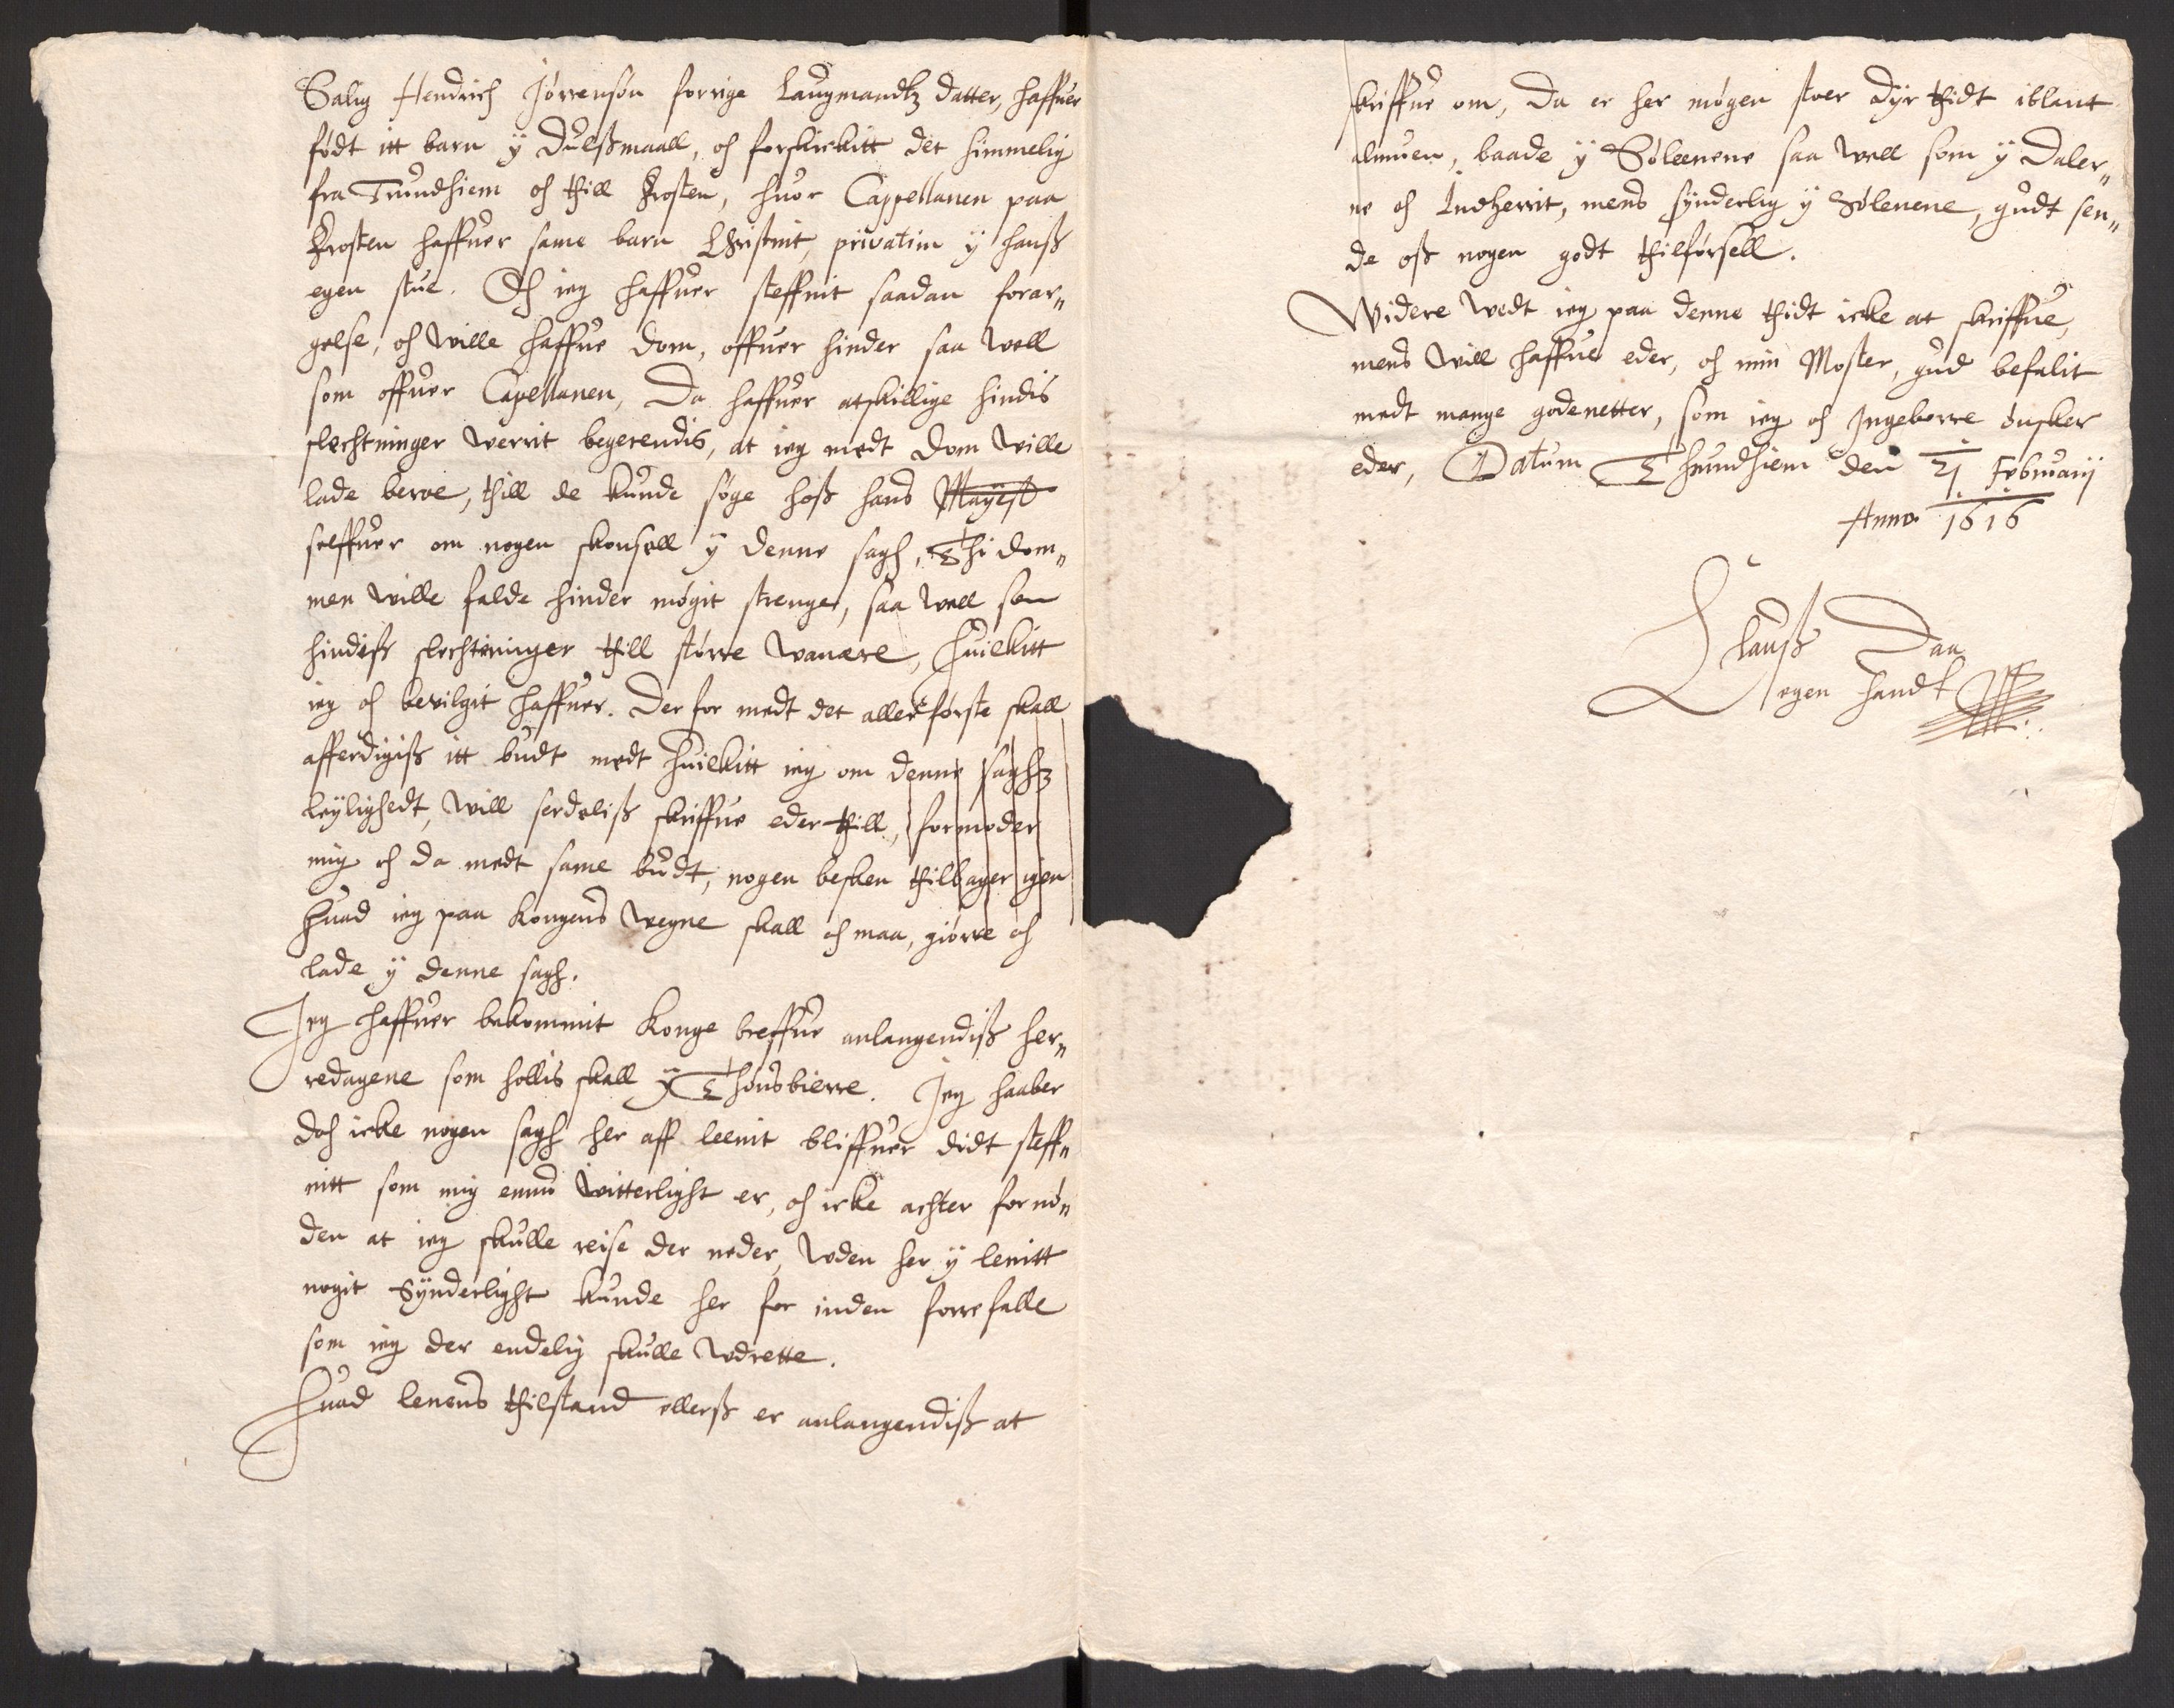 Salig Hendrich Jørrensøn forrige Laugmandtz datter, haffuer
født itt barn ÿ dulßmaall, och forskickitt det himmelig
fra Trundhiem och thill Frosten, huor Cappellanen paa
Frosten haffuer same barn Christnit, privatim ÿ hanß
egen stue. Och ieg haffuer steffnit saadan forar„
gelse, och wille haffue dom, offuer hinder saa well
som offuer Capellanen, Da haffuer atskillige hindis
slechtninger werrit begerendis, at ieg medt dom wille
lade beroe, thill de kunde søge hoß hans Mayest
selffuer om nogen skonsell ÿ denne sagh, Thi dom„
men wille falde hinder møgit strenge, saa well som
hindiß slechtninger thill større wanære, huilkitt
ieg och bevilgit haffuer. Der for medt det allerførste skall
afferdigiß itt budt medt huilkitt ieg om denne saghz
leÿlighedt, will serdeliß skriffue eder thill, formoder
mig och da medt same budt, nogen besken thilbager igen
huad ieg paa kongens wegne skall och maa, giørre och
lade ÿ denne sagh.
Jeg haffuer bekommit konge breffue anlangendiß her„
redagene som hollis skall ÿ Thønsbierre. Jeg haaber
doch icke nogen sagh her aff leenit bliffuer didt steff„
nitt som mig ennu witterlight er, och icke achter fornø„
den at ieg skulle reise der neder, wden her ÿ lenitt
nogit Sÿnderlight kunde her for inden forrefalle
som ieg der endelig skulle wdrette.
Huad lenens thilstand ellerß er anlangendiß at
skriffue om, Da er her møgen stoer dÿr thidt iblant
almuen, baade ÿ Søleenene saa well som ÿ Daler„
ne och Indherrit, mens sÿnderlig ÿ Sølenene, gudt sen„
de oß nogen godt thilførsell.
Widere wedt ieg paa denne thidt icke at skriffue,
mens will haffue eder, och min Moster, gud befalit
medt mange godenetter, som ieg och Ingeborre ønsker
eder, Datum Thrundhiem den 21 Februarij
Anno 1616
Clauß Daa
egen handt